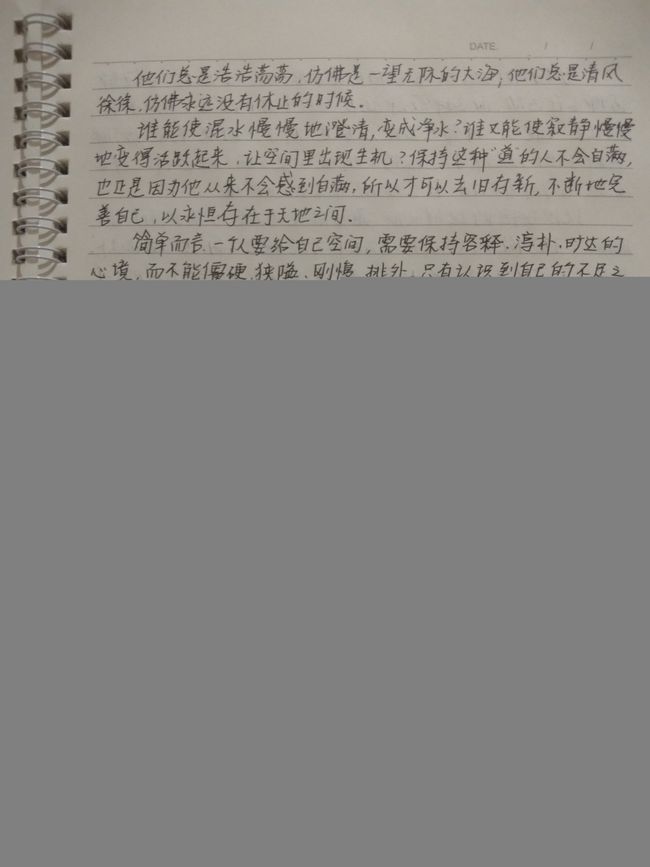 DATE. / /
他们总是浩浩荡荡,仿佛是一望无际的大海,他们总是清风
徐徐,仿佛永远没有休止的时候。
谁能使混水慢慢地澄清,变成净水?谁又能使寂静慢慢
地变得活跃起来,让空间里出现生机?保持这种"道"的人不会自满,
也正是因为他从来不会感到自满,所以才可以去旧存新,不断地完
善自己,以永恒存在于天地之间.
简单而言,一个人要给自己空间,需要保持容释、淳朴、旷达的
心境,而不能僵硬、狭隘、刚愎、排外,只有认识到自己的不足之